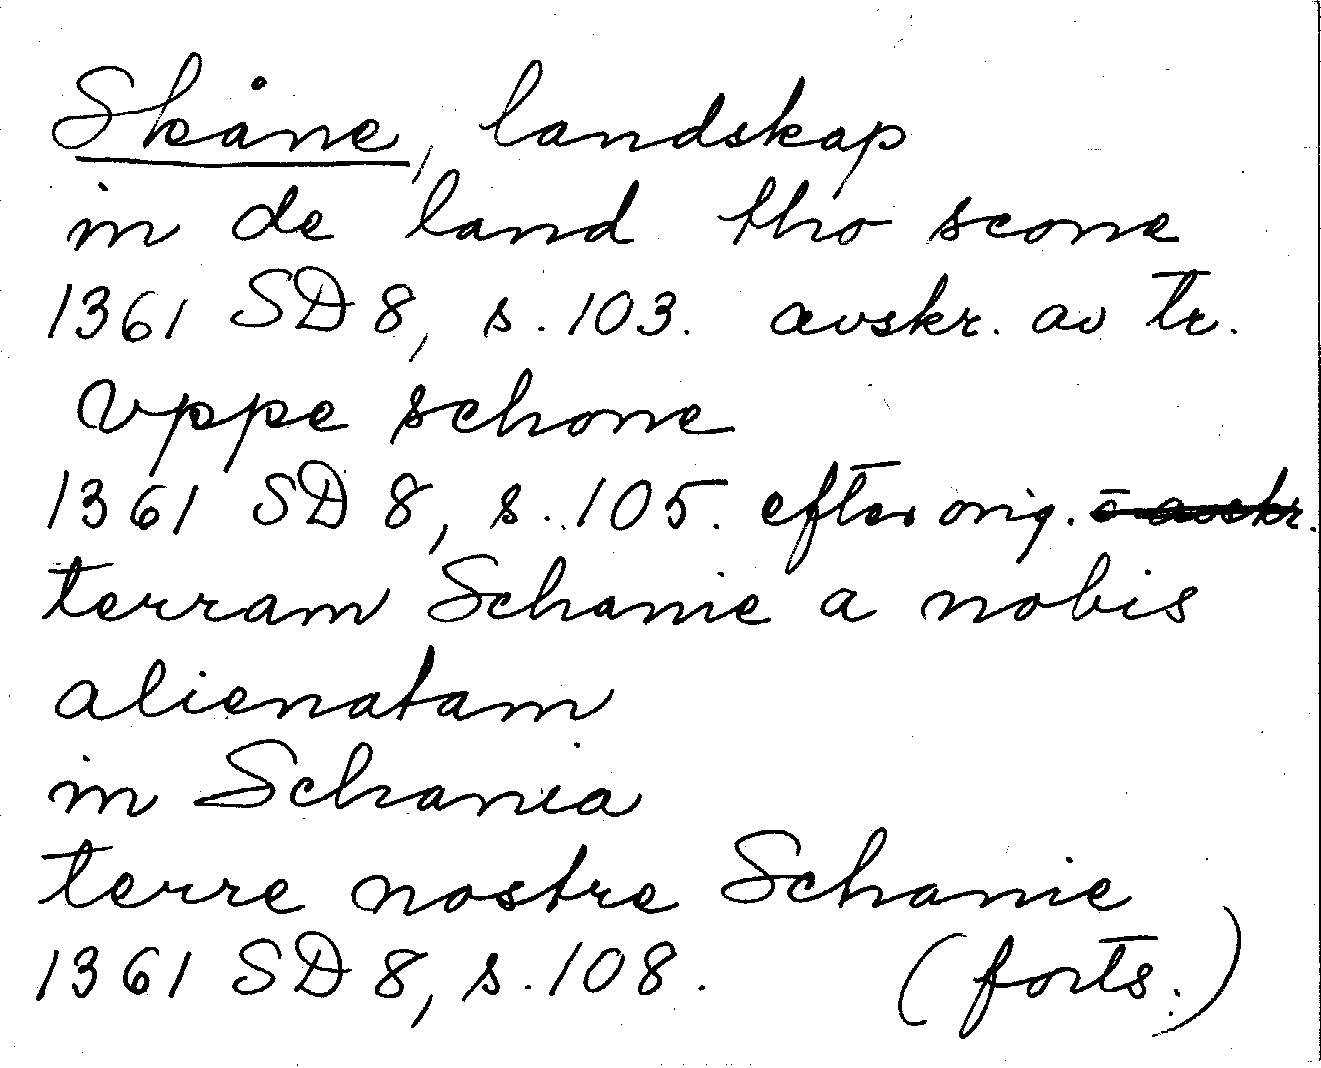 Skåne, landskap
in de land tho scone
1361 SD 8, s. 103. avskr. av tr.
Vppe schone
1361 SD 8, s. 105. efter orig.
terram Schanie a nobis
alienatam
in Schania
terre nostre Schanie
1361 SD 8, s. 108. (forts.)